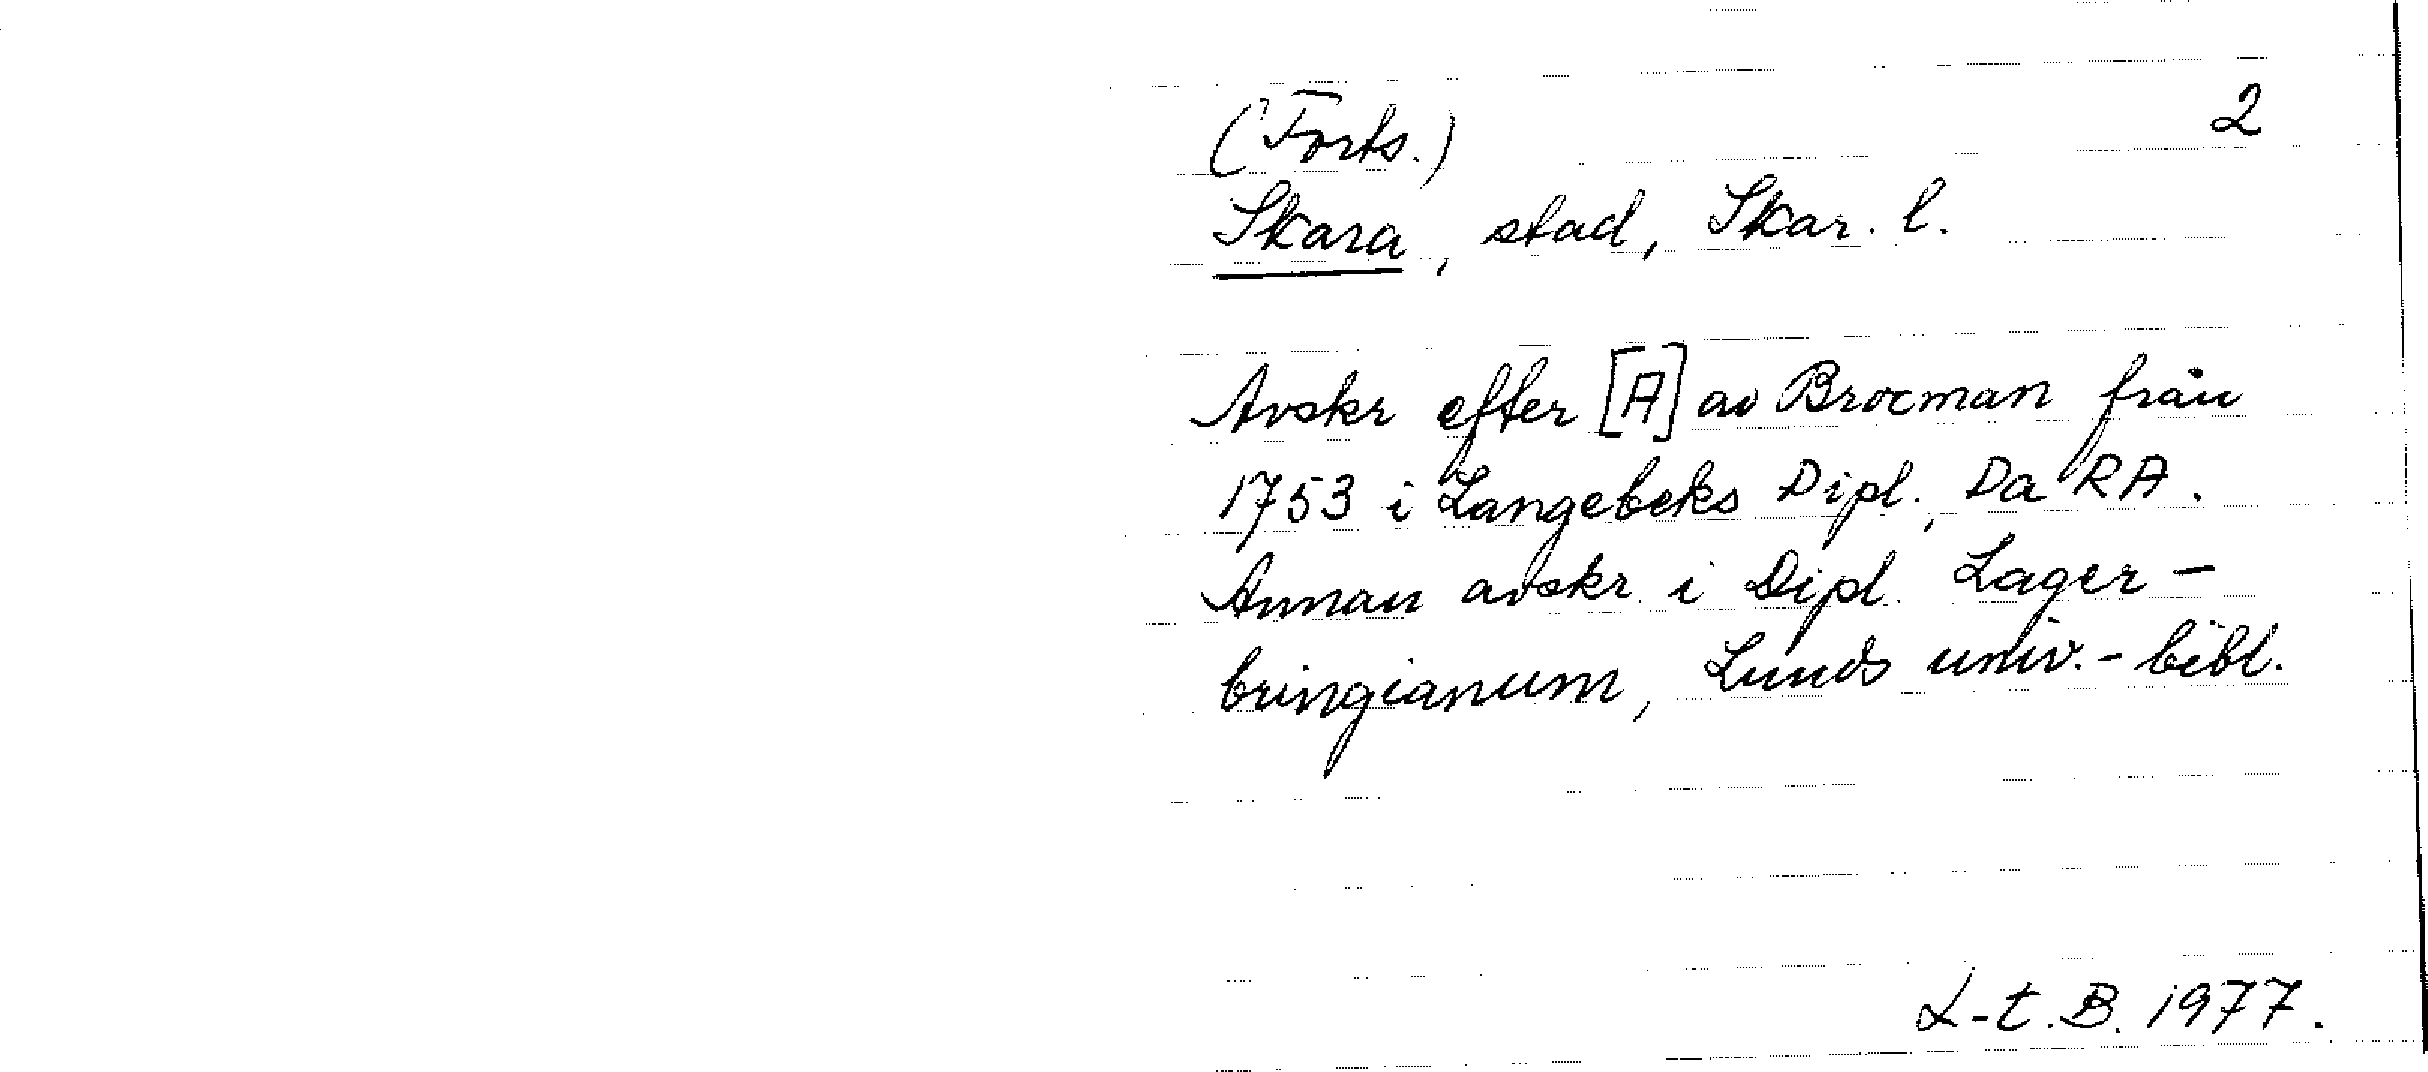 2
(Forts.)
Skara, stad, Skar. l.
Avskr efter [A] av Brocman från
1753 i Langebeks Dipl., Da RA.
Annan avskr. i Dipl. Lager-
bringianum, Lunds univ.-bibl.
L-t. B. 1977.